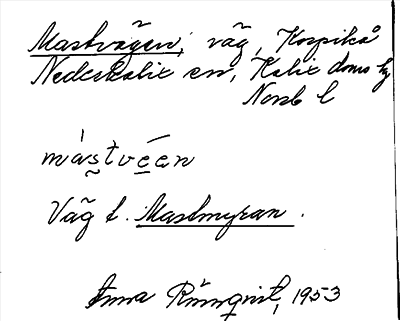 Mastvägen, väg, Korpikå
Nederkalix sn, Kalix doms hg
Norrb l
màstvéen
Väg t. Mastmyran.
Anna Rönnqvist, 1953